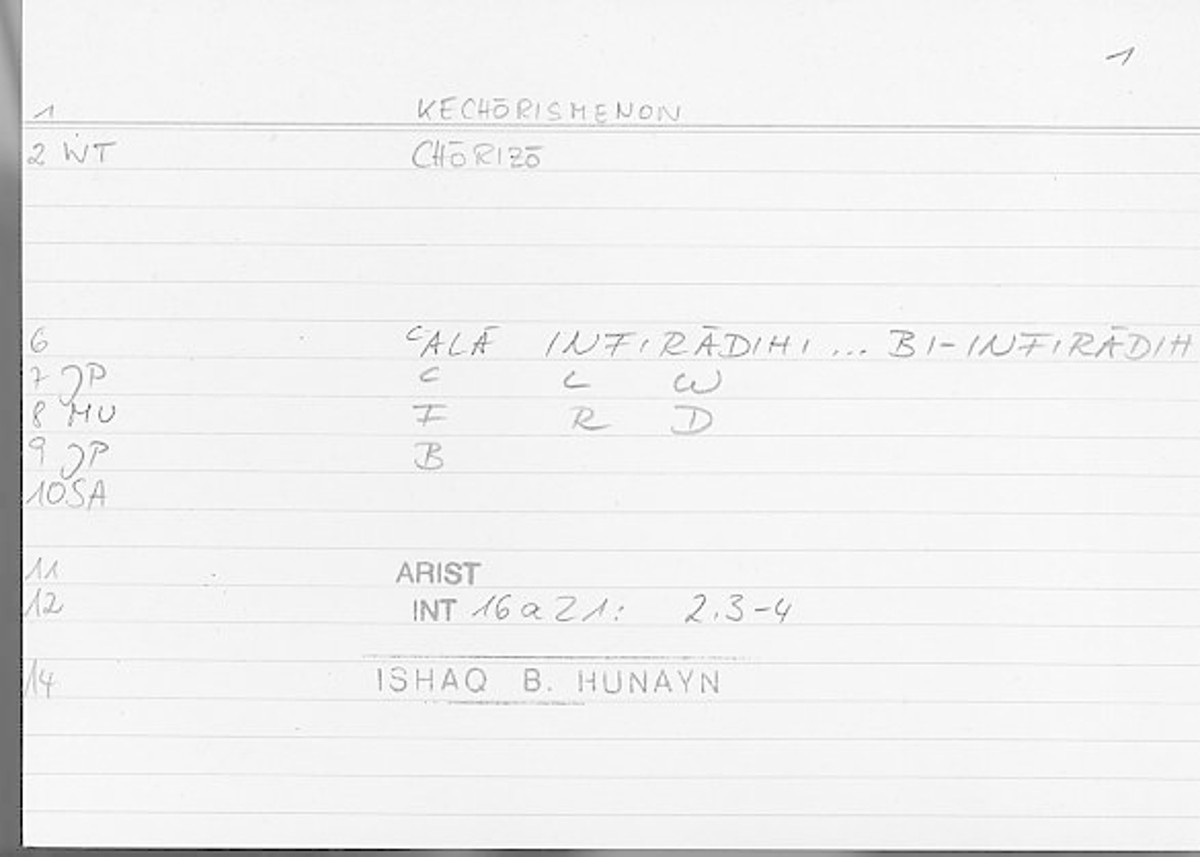 1
1 KECHŌRISMENON
2 WT CHŌRIZŌ
6 ᶜALĀ INFIRĀDIHI ... BI-INFIRĀDIH
7 JP ᶜ L W
8 MU F R D
9 JP B
10 SA
11 ARIST
12 INT 16 a 21: 2.3-4
14 ISHAQ B. HUNAYN